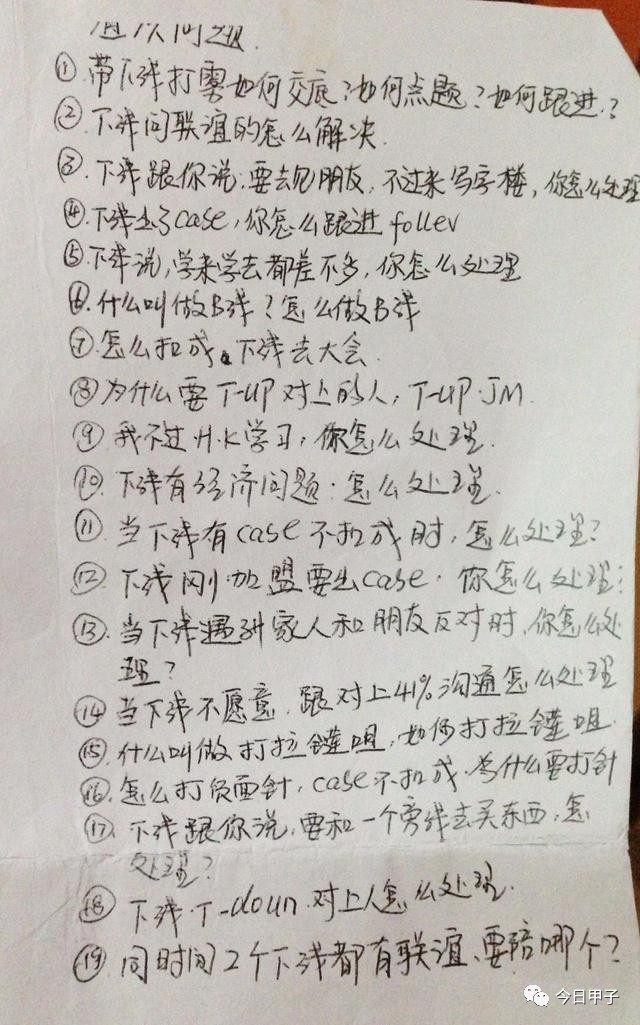 问题
①带下线打雾如何交底?如何点题?如何跟进?
②下线问联谊的怎么解决.
③.下线跟你说:要去见朋友,不过来写字楼,你怎么处理
④下线出了case,你怎么跟进follev
⑤下线说,学来学去都差不多,你怎么处理
⑥.什么叫做B线?怎么做B线
⑦.怎么扣成下线去大会.
⑧为什么要T-UP对上的人,T-UP.JM.
⑨我不过H.K学习,你怎么处理.
⑩.下线有经济问题.怎么处理.
⑪当下线有case不扣成时,怎么处理?
⑫下线刚加盟要出case.你怎么处理?
⑬.当下线遇到家人和朋友反对时,你怎么处
理?
⑭当下线不愿意.跟对上41%沟通怎么处理
⑮.什么叫做打拉链咀,如何打拉链咀.
⑯.怎么打负面针,case不扣成.为什么要打针
⑰.下线跟你说,要和一个旁线去买东西,怎
处理?
⑱下线.T-doun.对上人怎么处理.
⑲同时间2个下线都有联谊、要陪哪个?
今日甲子